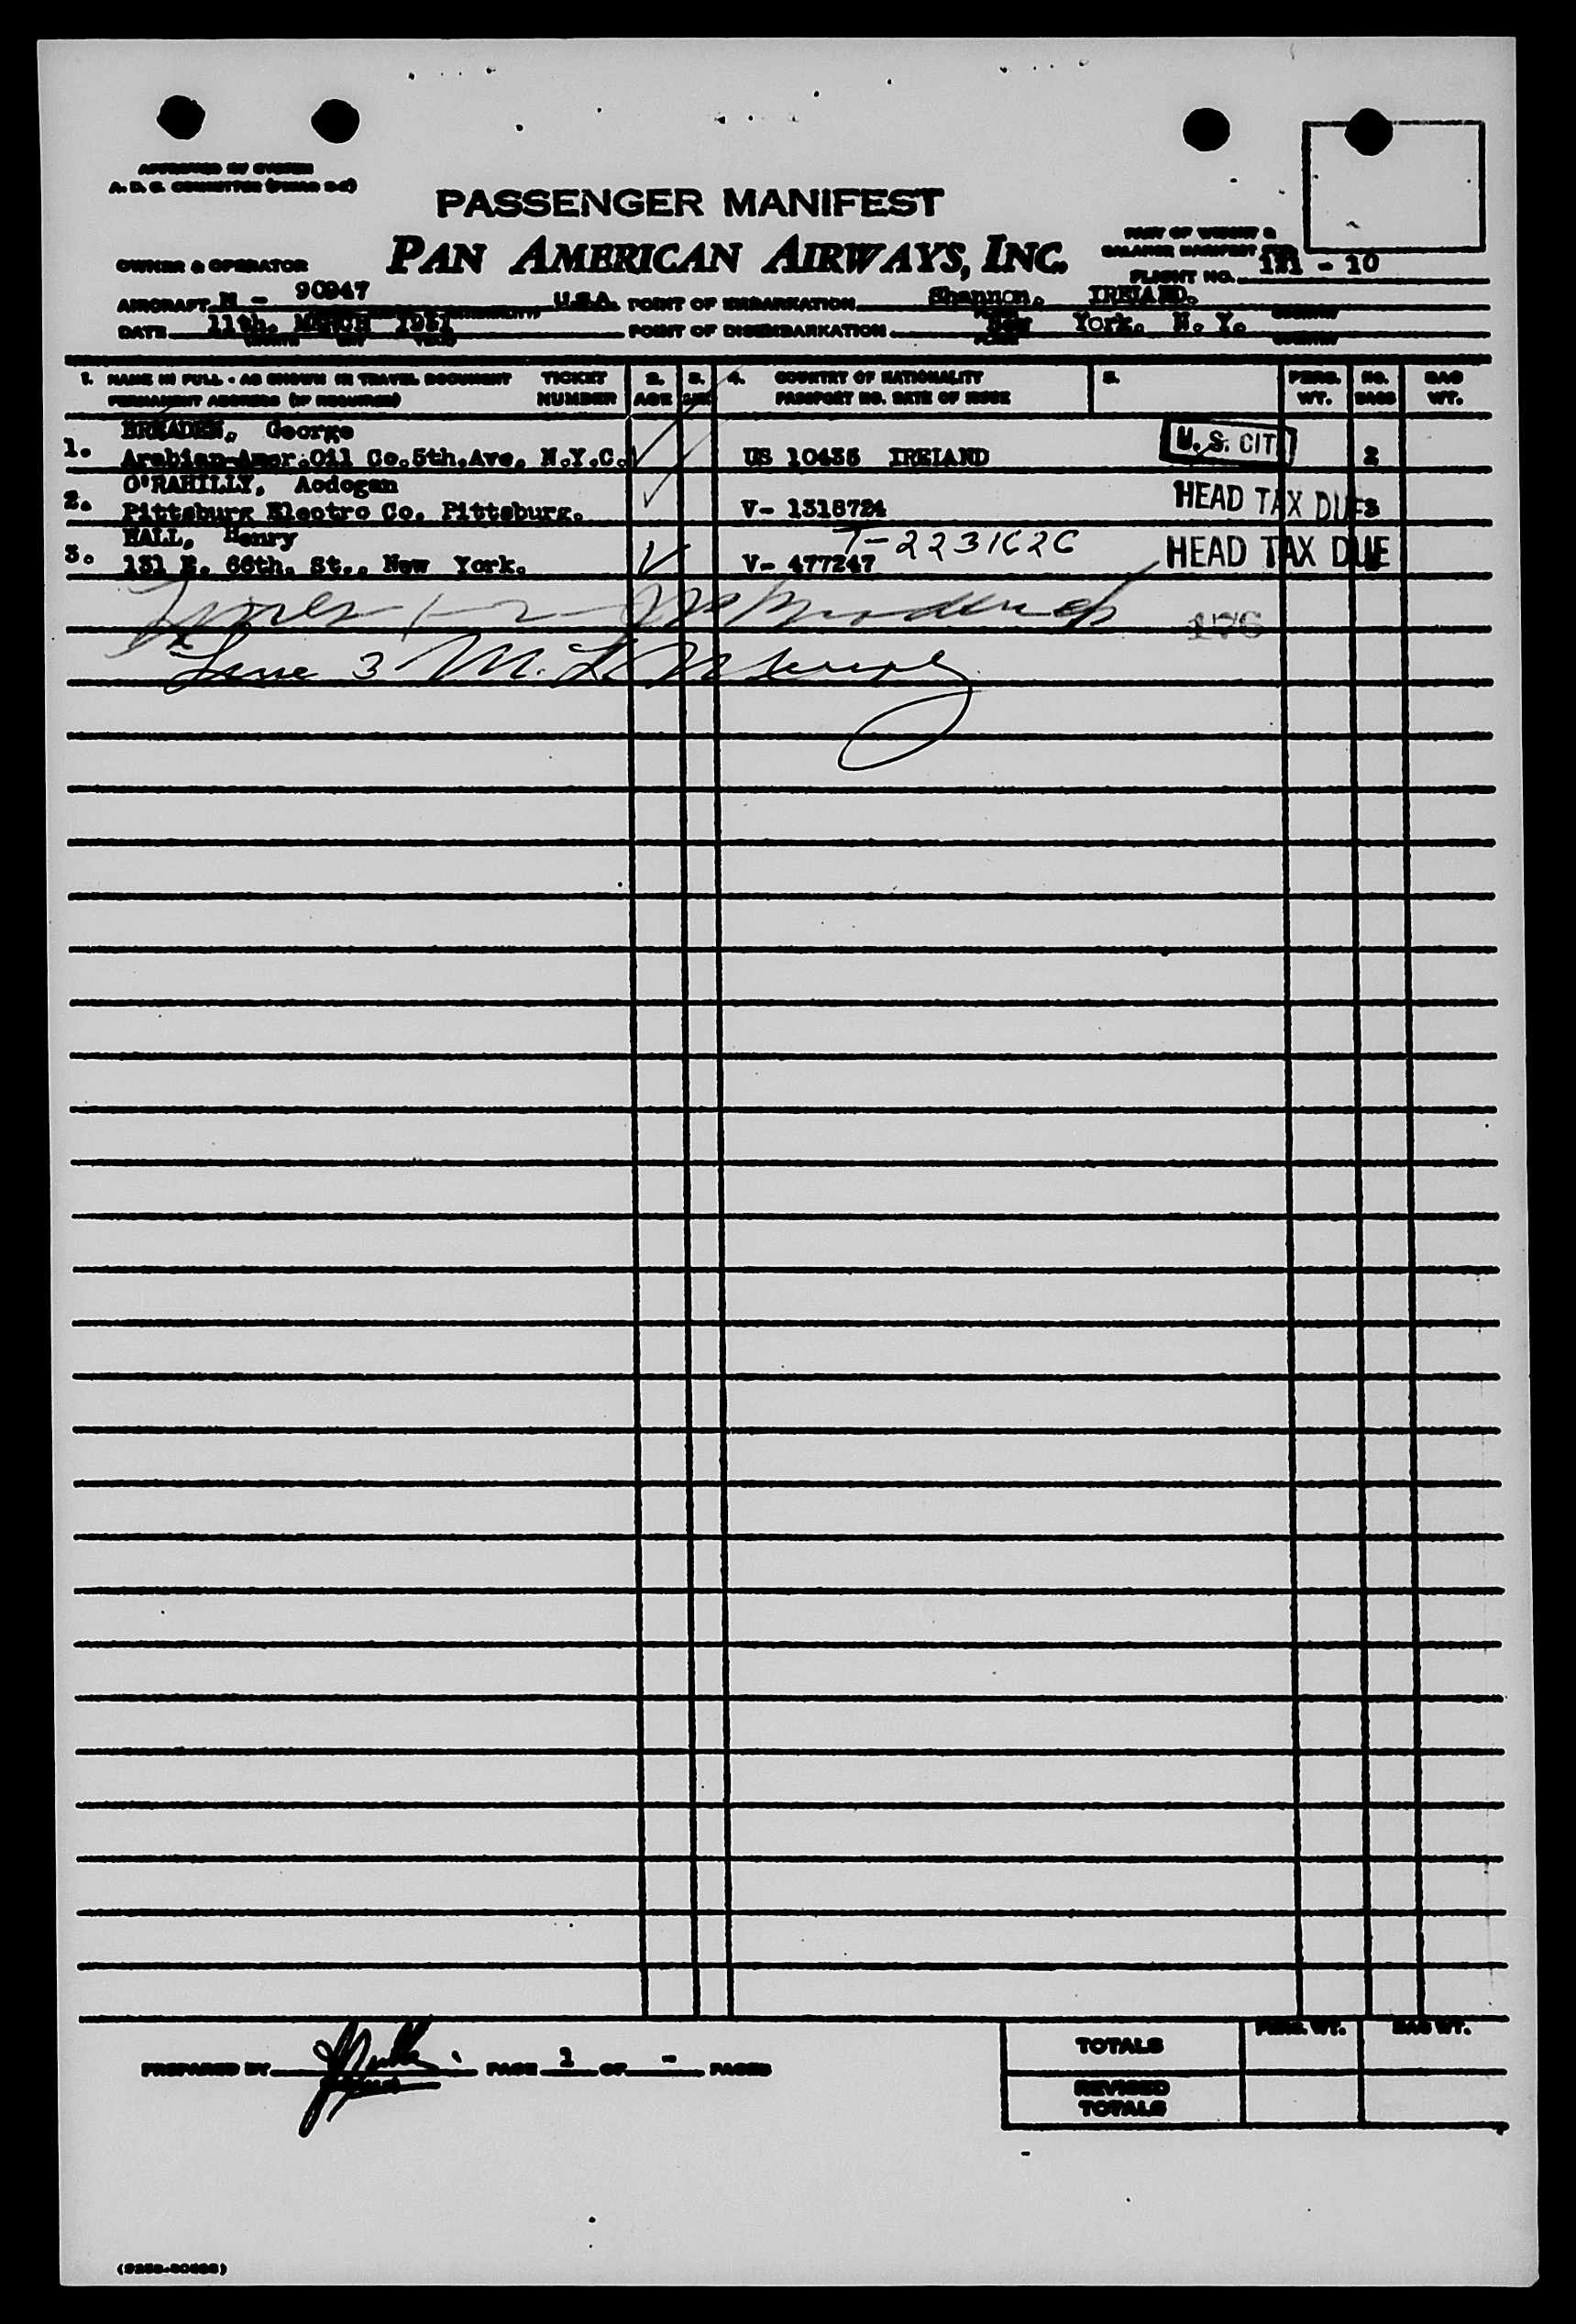 APPROVED BY SYSTEM
PASSENGER MANIFEST
PAN AMERICAN AIRWAYS, INC.
PART OF WEIGHT &
BALANCE MANIFEST
OWNER & OPERATOR
FLIGHT NO. 121 - 10
AIRCRAFT N - 90947 U.S.A. POINT OF EMBARKATION Shannon, IREIAND.
DATE 11th. MARCH 1951 POINT OF DISEMBARKATION New York. N. Y.
1. NAME IN FULL - AS SHOWN IN TRAVEL DOCUMENT TICKET 2. 3. 4. COUNTRY OF NATIONALITY 5. PERS. NO. BAG
PERMANENT ADDRESS (IF REQUIRED) NUMBER AGE SEX PASSPORT NO. DATE OF ISSUE WT. BAGS WT.
BREADEN, George
1. Arabian-Amer.Oil Co.5th.Ave. N.Y.C. US 10435 IREIAND U. S. CIT 2
O'RAHILLY, Aodogan
2. Pittsburg Electro Co. Pittsburg. V- 1318724 HEAD TAX DUE 3
HALL, Henry T-2231626
3. 131 E. 66th. St., New York. V- 477247 HEAD TAX DUE
176
Line 3 M. L.
PREPARED BY PAGE 1 OF - PAGES
TOTALS PERS. WT. BAG WT.
REVISED
TOTALS